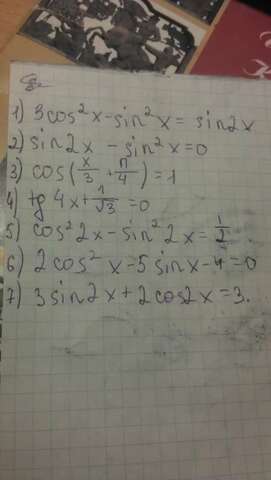 1) 3cos²x - sin²x = sin2x
2) sin2x - sin²x = 0
3) cos(x/3 + π/4) = 1
4) tg 4x + 1/√3 = 0
5) cos²2x - sin²2x = 1/2
6) 2cos²x - 5sinx - 4 = 0
7) 3sin2x + 2cos2x = 3.